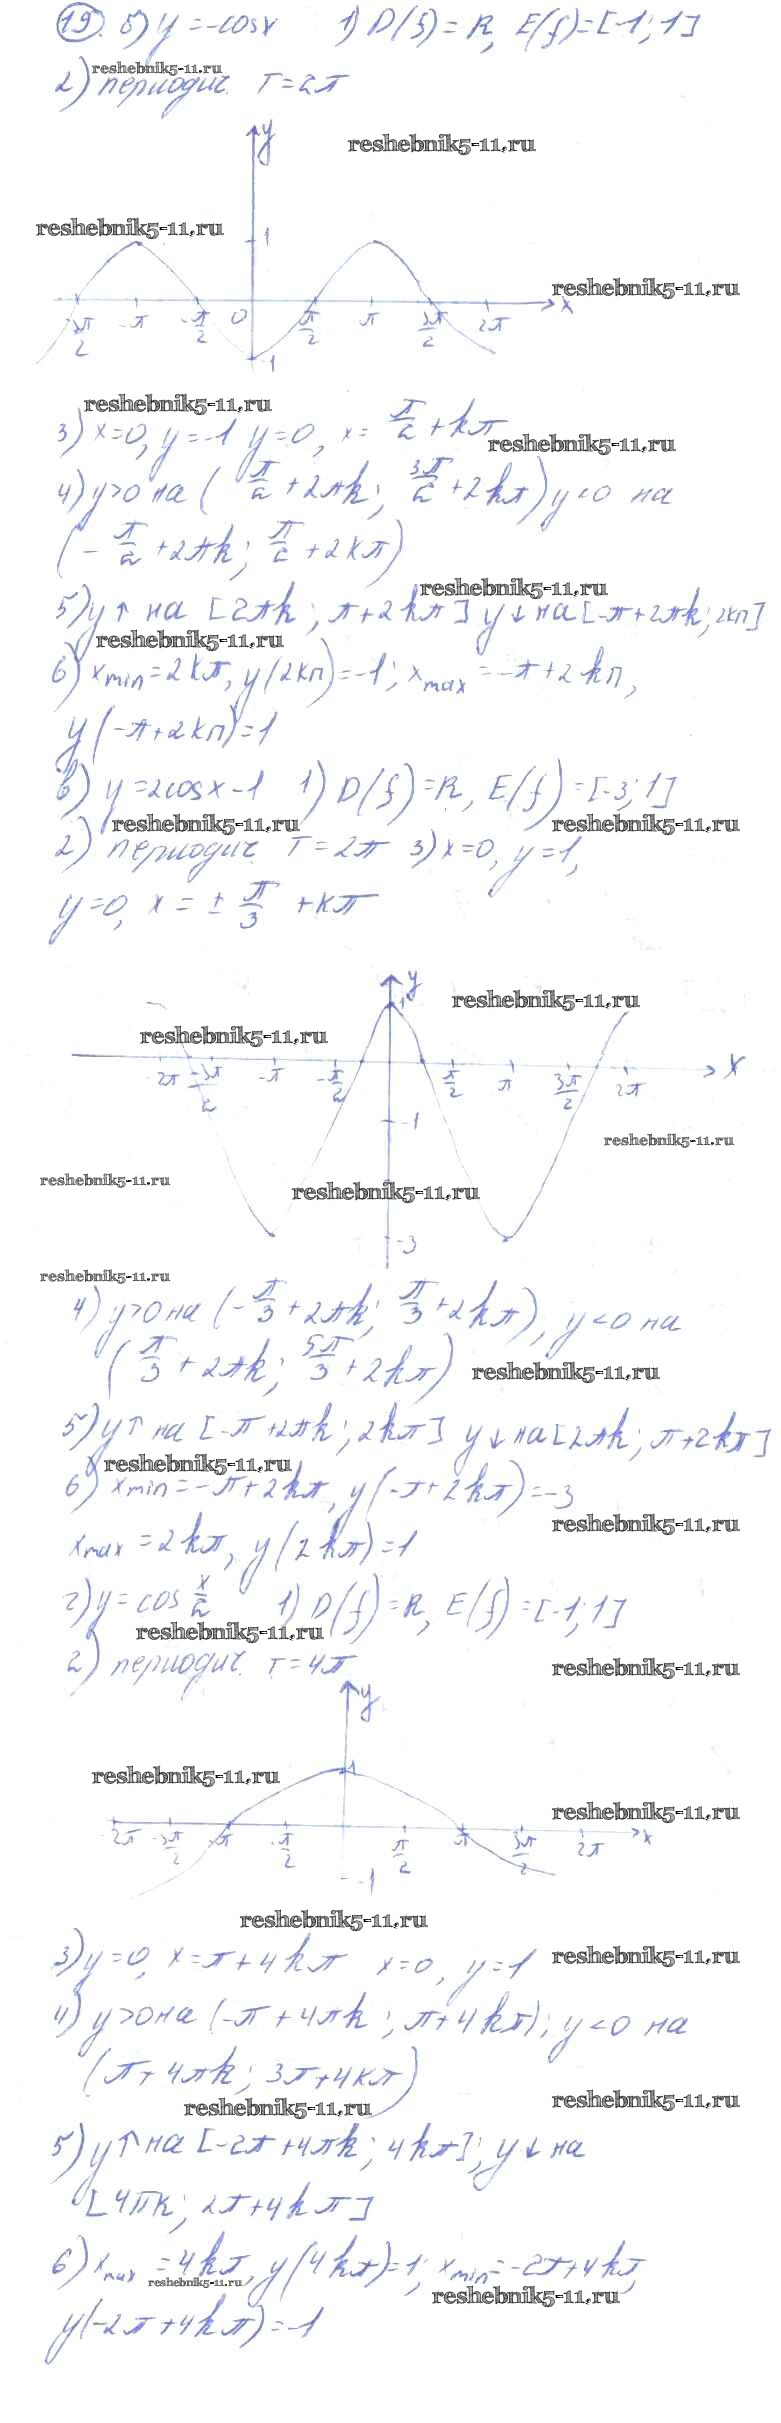 19. б) y = -cosx 1) D(f) = R, E(f) = [-1; 1]
reshebnik5-11.ru
2) периодич. T = 2π
y
reshebnik5-11.ru
reshebnik5-11.ru
1
reshebnik5-11.ru
-3π/2 -π -π/2 0 π/2 π 3π/2 2π x
-1
reshebnik5-11.ru
3) x=0, y=-1 y=0, x= π/2 + kπ
reshebnik5-11.ru
4) y>0 на (π/2 + 2πk; 3π/2 + 2kπ) y<0 на
(-π/2 + 2πk; π/2 + 2kπ)
reshebnik5-11.ru
5) y↑ на [2πk; π+2kπ] y↓ на [-π+2πk; 2kπ]
reshebnik5-11.ru
6) xmin = 2kπ, y(2kπ) = -1; xmax = -π+2kπ,
y(-π+2kπ) = 1
в) y = 2cosx - 1 1) D(f) = R, E(f) = [-3; 1]
reshebnik5-11.ru reshebnik5-11.ru
2) периодич. T = 2π 3) x=0, y=1,
y=0, x = ± π/3 + kπ
y
reshebnik5-11.ru
1
reshebnik5-11.ru
-2π -3π/2 -π -π/2 π/2 π 3π/2 2π x
-1
reshebnik5-11.ru
reshebnik5-11.ru
reshebnik5-11.ru
-3
reshebnik5-11.ru
4) y>0 на (-π/3 + 2πk; π/3 + 2kπ), y<0 на
(π/3 + 2πk; 5π/3 + 2kπ)
reshebnik5-11.ru
5) y↑ на [-π+2πk; 2kπ] y↓ на [2πk; π+2kπ]
reshebnik5-11.ru
6) xmin = -π+2kπ, y(-π+2kπ) = -3
reshebnik5-11.ru
xmax = 2kπ, y(2kπ) = 1
г) y = cos x/2 1) D(f) = R, E(f) = [-1; 1]
reshebnik5-11.ru
2) периодич. T = 4π
reshebnik5-11.ru
y
reshebnik5-11.ru
1
reshebnik5-11.ru
-2π -3π/2 -π -π/2 π/2 π 3π/2 2π x
-1
reshebnik5-11.ru
3) y=0, x = π+4kπ x=0, y=1
reshebnik5-11.ru
4) y>0 на (-π+4πk; π+4kπ); y<0 на
(π+4πk; 3π+4kπ)
reshebnik5-11.ru
reshebnik5-11.ru
5) y↑ на [-2π+4πk; 4kπ]; y↓ на
[4πk; 2π+4kπ]
6) xmax = 4kπ, y(4kπ) = 1; xmin = -2π+4kπ,
reshebnik5-11.ru
reshebnik5-11.ru
y(-2π+4kπ) = -1